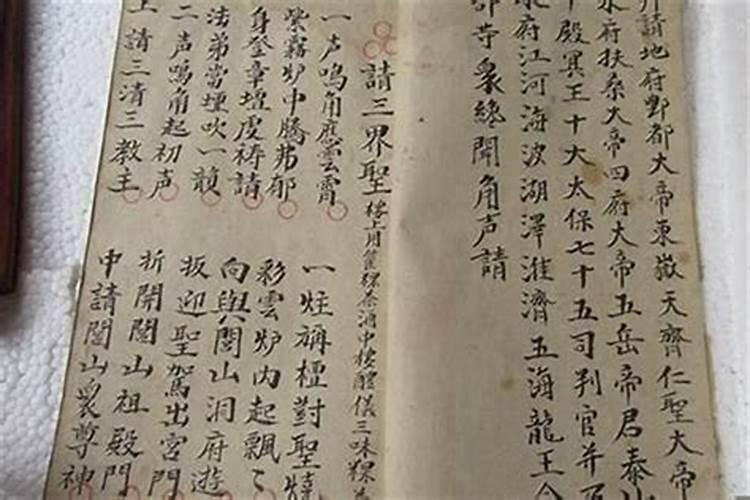 請地府酆都大帝東嶽天齊仁聖大帝
水府扶桑大帝四府大帝五岳帝君泰山
十殿冥王十大太保七十五司判官并
府江河海波湖澤淮濟五海龍王
部寺衆總聞角声請
請三界聖
一声鳴角應雲霄
紫霧炉中騰弗郁
身登章壇虔祷請
法弟當壇吹一韻
二声鳴角起初声
上請三清三教主
一炷稱檀對聖燒
彩雲炉内起飄〻
向與閭山洞府遊
扳迎聖駕出宮門
折開閭山祖殿門
中請閭山衆尊神